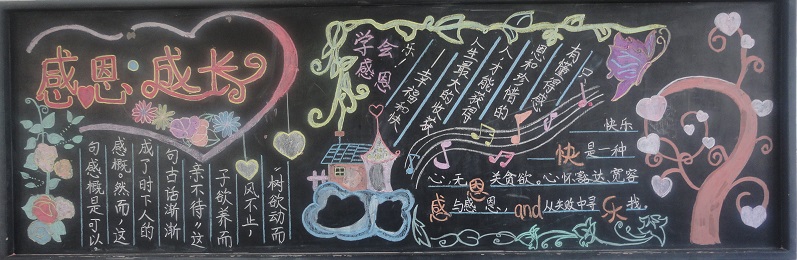 感恩·成长
"树欲动而
风不止，
子欲养而
亲不待"这
句古话渐渐
成了时下人的
感概。然而，这
句感概是可以
学会
感恩
只
有懂得感
恩和珍惜的
人才能获得
人生最大的收获
——幸福和快
乐
快乐
快是一种
心，无恩关贪欲。心怀豁达、宽容
感与感恩，and从失败中寻乐找。